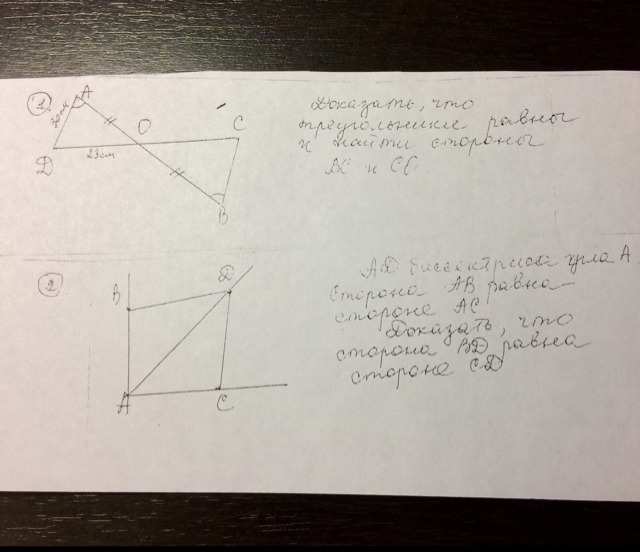 1
A
O
C
D
23см
B
Доказать, что
треугольники равны
и найти стороны
2
D
B
A
C
AD биссектриса угла A
Сторона AB равна
стороне AC
Доказать, что
сторона BD равна
стороне CD